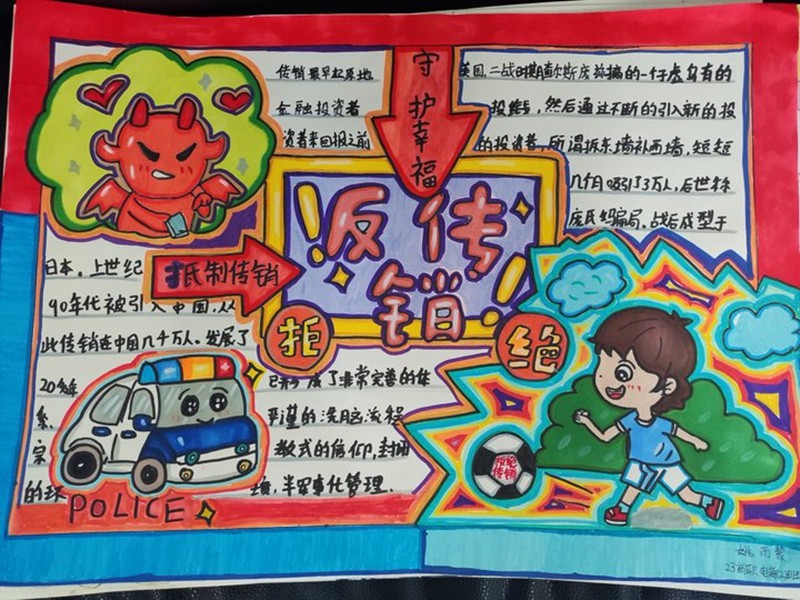 传销最早起原地
金融投资者
资者来回报之前
英国,二战时期查尔斯庞兹搞的一个虚乌有的
投线,然后通过不断的引入新的投
的投资者,所谓拆东墙补西墙,短短
几个月吸引了3万人,后世称
庞氏骗局。战后成型于
守护幸福
返传
销
抵制传销
拒
绝
日本。上世纪
90年代被引入中国,从
此传销在中国几千万人。发展了
20多年
已形成了非常完善的体
系,
严谨的洗脑流程
宗
教式的信仰,封闭
的环
境,半军事化管理.
POLICE
拒绝
传销
姚雨